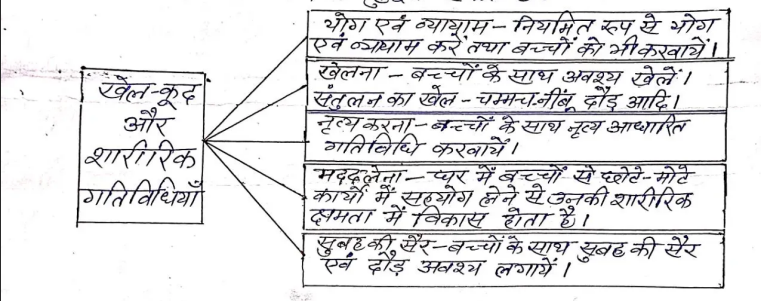 खेल-कूद
और
शारीरिक
गतिविधियाँ
योग एवं व्यायाम - नियमित रूप से योग
एवं व्यायाम करें तथा बच्चों को भी करवायें।
खेलना - बच्चों के साथ अवश्य खेलें।
संतुलन का खेल - चम्मच नींबू दौड़ आदि।
नृत्य करना - बच्चों के साथ नृत्य आधारित
गतिविधि करवायें।
मदद लेना - घर में बच्चों से छोटे-मोटे
कार्यों में सहयोग लेने से उनकी शारीरिक
क्षमता में विकास होता है।
सुबह की सैर - बच्चों के साथ सुबह की सैर
एवं दौड़ अवश्य लगायें।